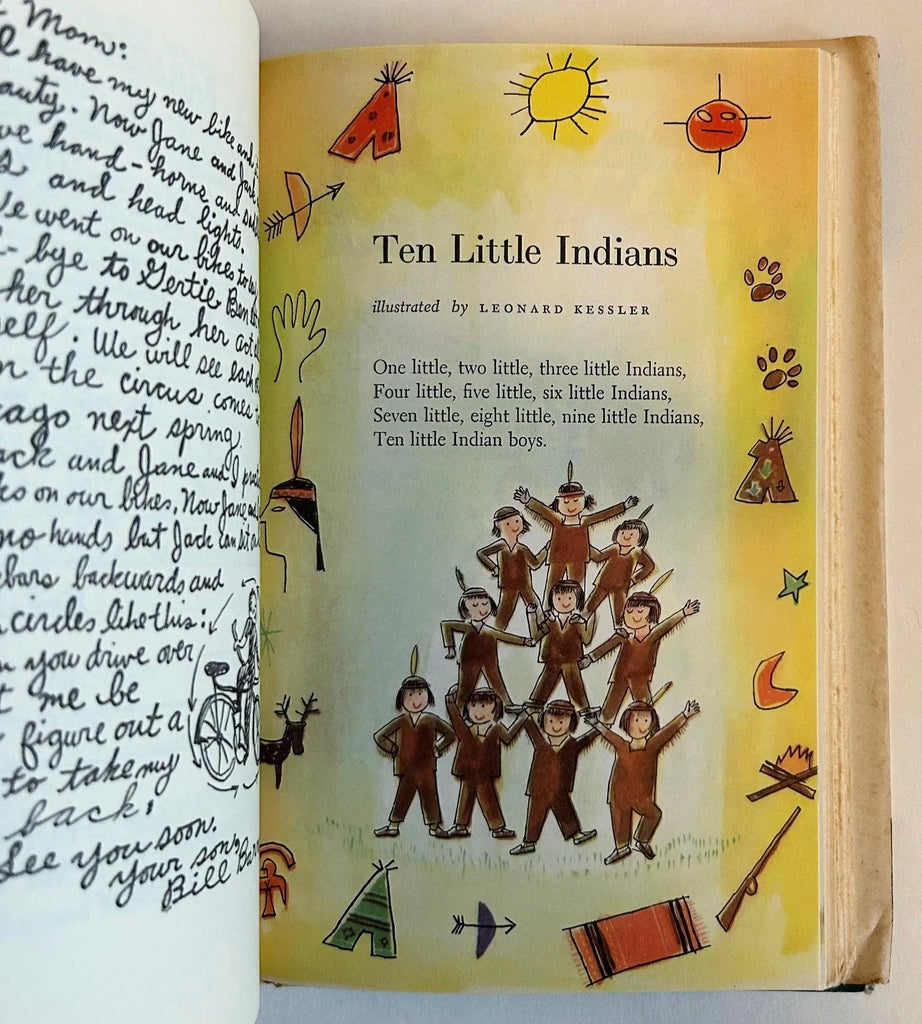 Mom:
I have my new bike and
auty. Now Jane and Jack
ve hand-horns and
s and head lights.
We went on our bikes to
-bye to Gertie
her through her act
self. We will see each
n the circus comes
cago next spring.
ack and Jane and I
ks on our bikes. Now Jane
no hands but Jack can sit
bars backwards and
circles like this:
n you drive over
t me be
figure out a
to take my
back.
See you soon.
Your son,
Bill
Ten Little Indians
illustrated by LEONARD KESSLER
One little, two little, three little Indians,
Four little, five little, six little Indians,
Seven little, eight little, nine little Indians,
Ten little Indian boys.